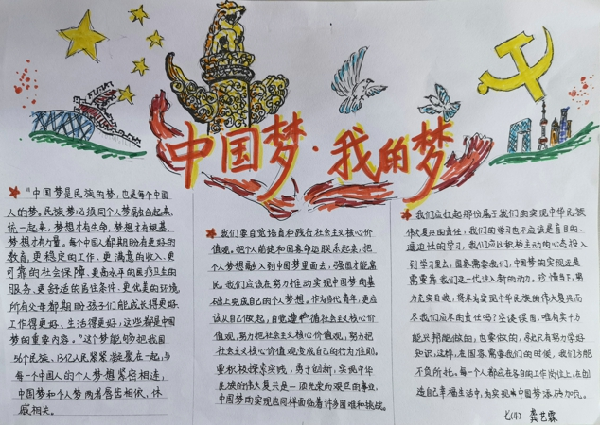 中国梦·我的梦
"中国梦是民族的梦，也是每个中国
人的梦。民族梦必须同个人梦融合起来，
统一起来，梦想才有生命，梦想才有根基，
梦想才有力量。每个中国人都期盼有更好的
教育、更稳定的工作、更满意的收入、更
可靠的社会保障、更高水平的医疗卫生的
服务、更舒适的居住条件、更优美的环境
所有父母都期盼孩子们能成长得更好、
工作得更好、生活得更好，这些都是中国
梦的重要内容。"这个梦能够把我国
56个民族、13亿人民紧紧凝聚在一起，与
每一个中国人的个人梦想紧密相连，
中国梦和个人梦两者唇齿相依、休
戚相关。
我们要自觉培育和践行社会主义核心价
值观。把个人的捷和国家命运联系起来，把
个人梦想融入到中国梦里面去，强国才能富
民。我们应该在努力性的实现中国梦的基
础上完成自己的个人梦想。作为当代青年，更应
该从自己做起，自觉遵守社会主义核心价
值观，努力把社会主义核心价值观，努力把
社会主义核心价值观变成自己的行为准则。
要积极探索实践，勇于创新，实现中华
民族的伟大复兴是一项光荣而艰巨的事业，
中国梦的实现当同样面临着许多困难和挑战。
我们应扛起那份属于我们的实现中华民族
伟大复兴的责任，我们的学习也不应该是盲目的、
通过社的学习，我们应以积极主动的心态投入
到学习里去，国家需要我们，中国梦的实现还是
需要靠我们这一代注入新的动力。珍惜当下，竭
力充实自我，将来为实现中华民族伟大复兴而
不我们应不肉责任吗？空谈误国，唯有实干
能兴邦能做的，也要做的，尽此只有努力学好
知识，这样，在国家需要我们的时候，我们方能
不负所托。每一个人都应在各自的工作岗位上，在创
造自己幸福生活中，为实现中国梦添砖加瓦。
龚艺霖